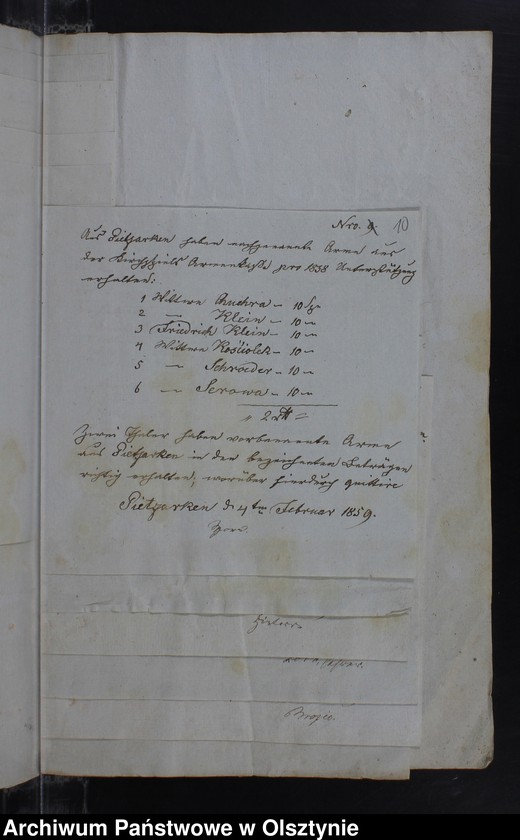 Nro. 9 10
Aus Pietzarken haben nachgenannte Arme aus
der Kirchspiels Armenkasse pro 1858 Unterstützung
erhalten:
1 Wittwe Kuchra - 10 Sgr
2 — Klein - 10 —
3 Friedrich Klein - 10 —
4 Wittwe Kosciolek - 10 —
5 — Schroeder - 10 —
6 — Serowa - 10 —
2 rtl
Zwei Thaler haben vorbenannte Arme
aus Pietzarken in den bezeichneten Beträgen
richtig erhalten, worüber hierdurch quittire
Pietzarken d 4ten Februar 1859.
Archiwum Państwowe w Olsztynie